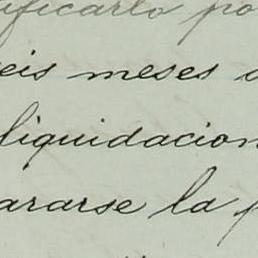 ificarlo po
eis meses
liquidacion
ararse la p